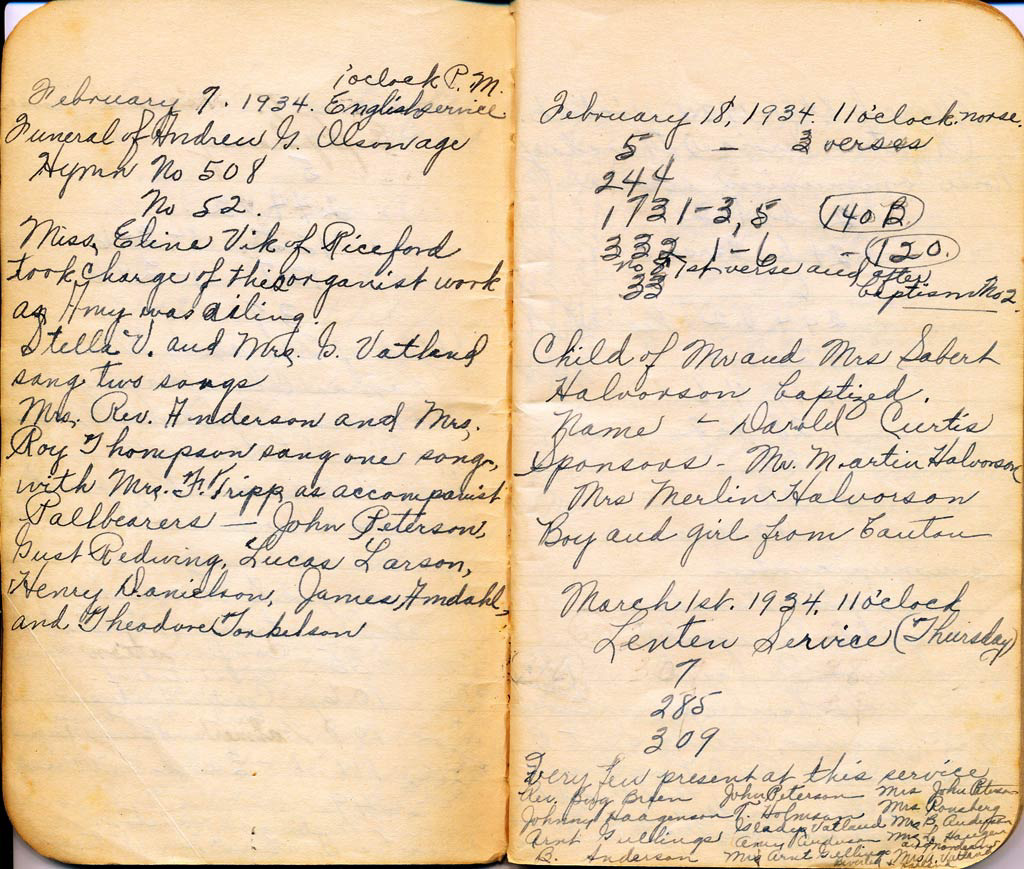 1 oclock P.M.
February 7. 1934. English service
Funeral of Andrew G. Olson age
Hymn No 508
No 52.
Miss, Eline Vik of Riceford
took charge of the organist work
as Amy was ailing.
Stella V. and Mrs, G. Vatland
sang two songs
Mrs. Rev. Anderson and Mrs.
Roy Thompson sang one song,
with Mrs. F. Tripp as accompanist
Pallbearers — John Peterson,
Gust Rediving, Lucas Larson,
Henry Danielson, James Amdahl,
and Theodore Torkelson
February 18, 1934. 11 o'clock. norse.
5 - 3 verses
244
173 1-3, 5 140 B.
332 1-6 - 120.
No 1st verse and after
33 baptism No 2.
Child of Mr and Mrs Sabert
Halvorson baptized.
Name - Darold Curtis
Sponsors - Mr. Martin Halvorson
Mrs Merlin Halvorson
Boy and girl from Canton
March 1st. 1934. 11 o'clock
Lenten Service (Thursday)
7
285
309
Very few present at this service
Rev. Breen John Peterson Mrs John Peterson
Johnny Haagenson T. Holmson Mrs Ronsberg
Arnt Gullings Gladys Vatland Mrs B. Anderson
Amy Anderson Mrs
B. Anderson Mrs Arnt Gullings Mrs. Vatland